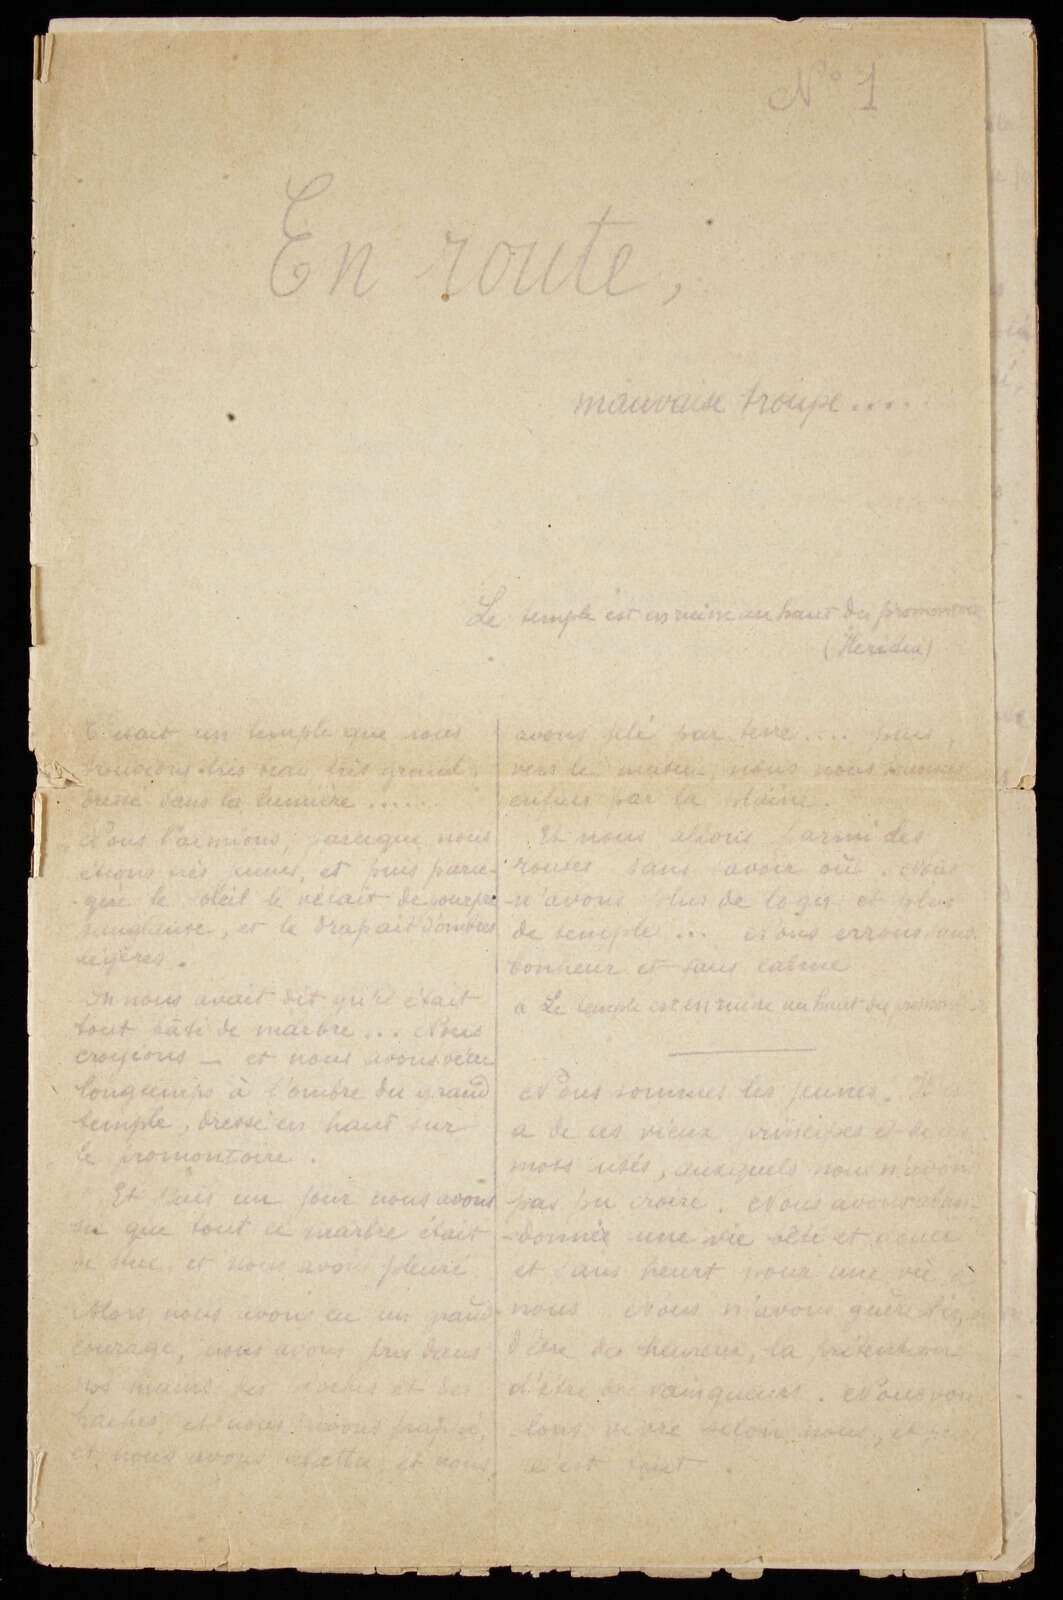 N° 1
En route,
mauvaise troupe.....
Le temple est en ruine au haut du promontoire
(Heredia)
C'était un temple que nous
trouvions très beau, très grand,
dressé dans la lumière......
Nous l'aimions, parceque nous
étions très jeunes, et puis parce-
que le soleil le vêtait de pourpre
, et le drapait d'ombres
légères.
On nous avait dit qu'il était
tout bâti de marbre... Nous
croyions — et nous avons vécu
longtemps à l'ombre du grand
temple, dressé en haut sur
le promontoire.
Et puis un jour nous avons
su que tout ce marbre était
, et nous avons pleuré.
Alors nous avons eu un grand
courage, nous avons pris dans
nos mains des pioches et des
haches, et nous avons frappé,
et nous avons abattu, et nous
avons jeté par terre.... puis,
vers le matin, nous nous sommes
enfuis par la plaine.
Et nous allons parmi les
routes sans savoir où. Nous
n'avons plus de logis et plus
de temple... Nous errons sans
bonheur et sans calme
Le temple est en ruine au haut du promontoire
Nous sommes les jeunes. Il y
a de ces vieux principes et de ces
mots usés, auxquels nous n'avons
pas pu croire. Nous avons aban-
-donné une vie et
et sans heurt pour une vie à
nous. Nous n'avons guère
d'être des heureux, la prétention
d'être des vainqueurs. Nous vou-
lons vivre selon nous, et
c'est tout.